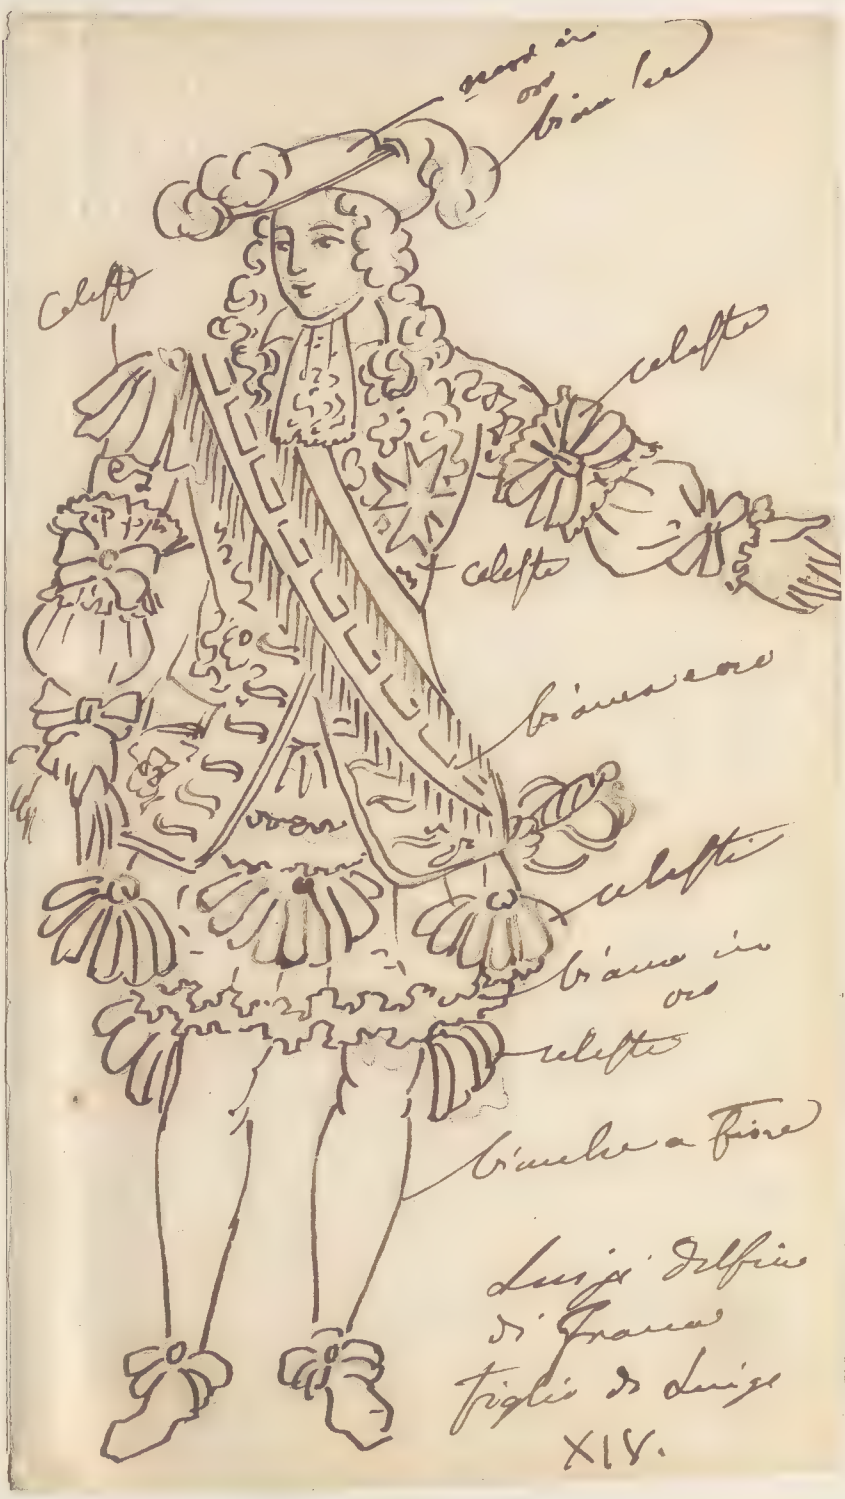 nero in
oro
bianche
celeste
celeste
celeste
bianca e oro
celesti
bianco in
oro
celeste
bianche a fiore
Luigi Delfino
di Francia
figlio di Luigi
XIV.